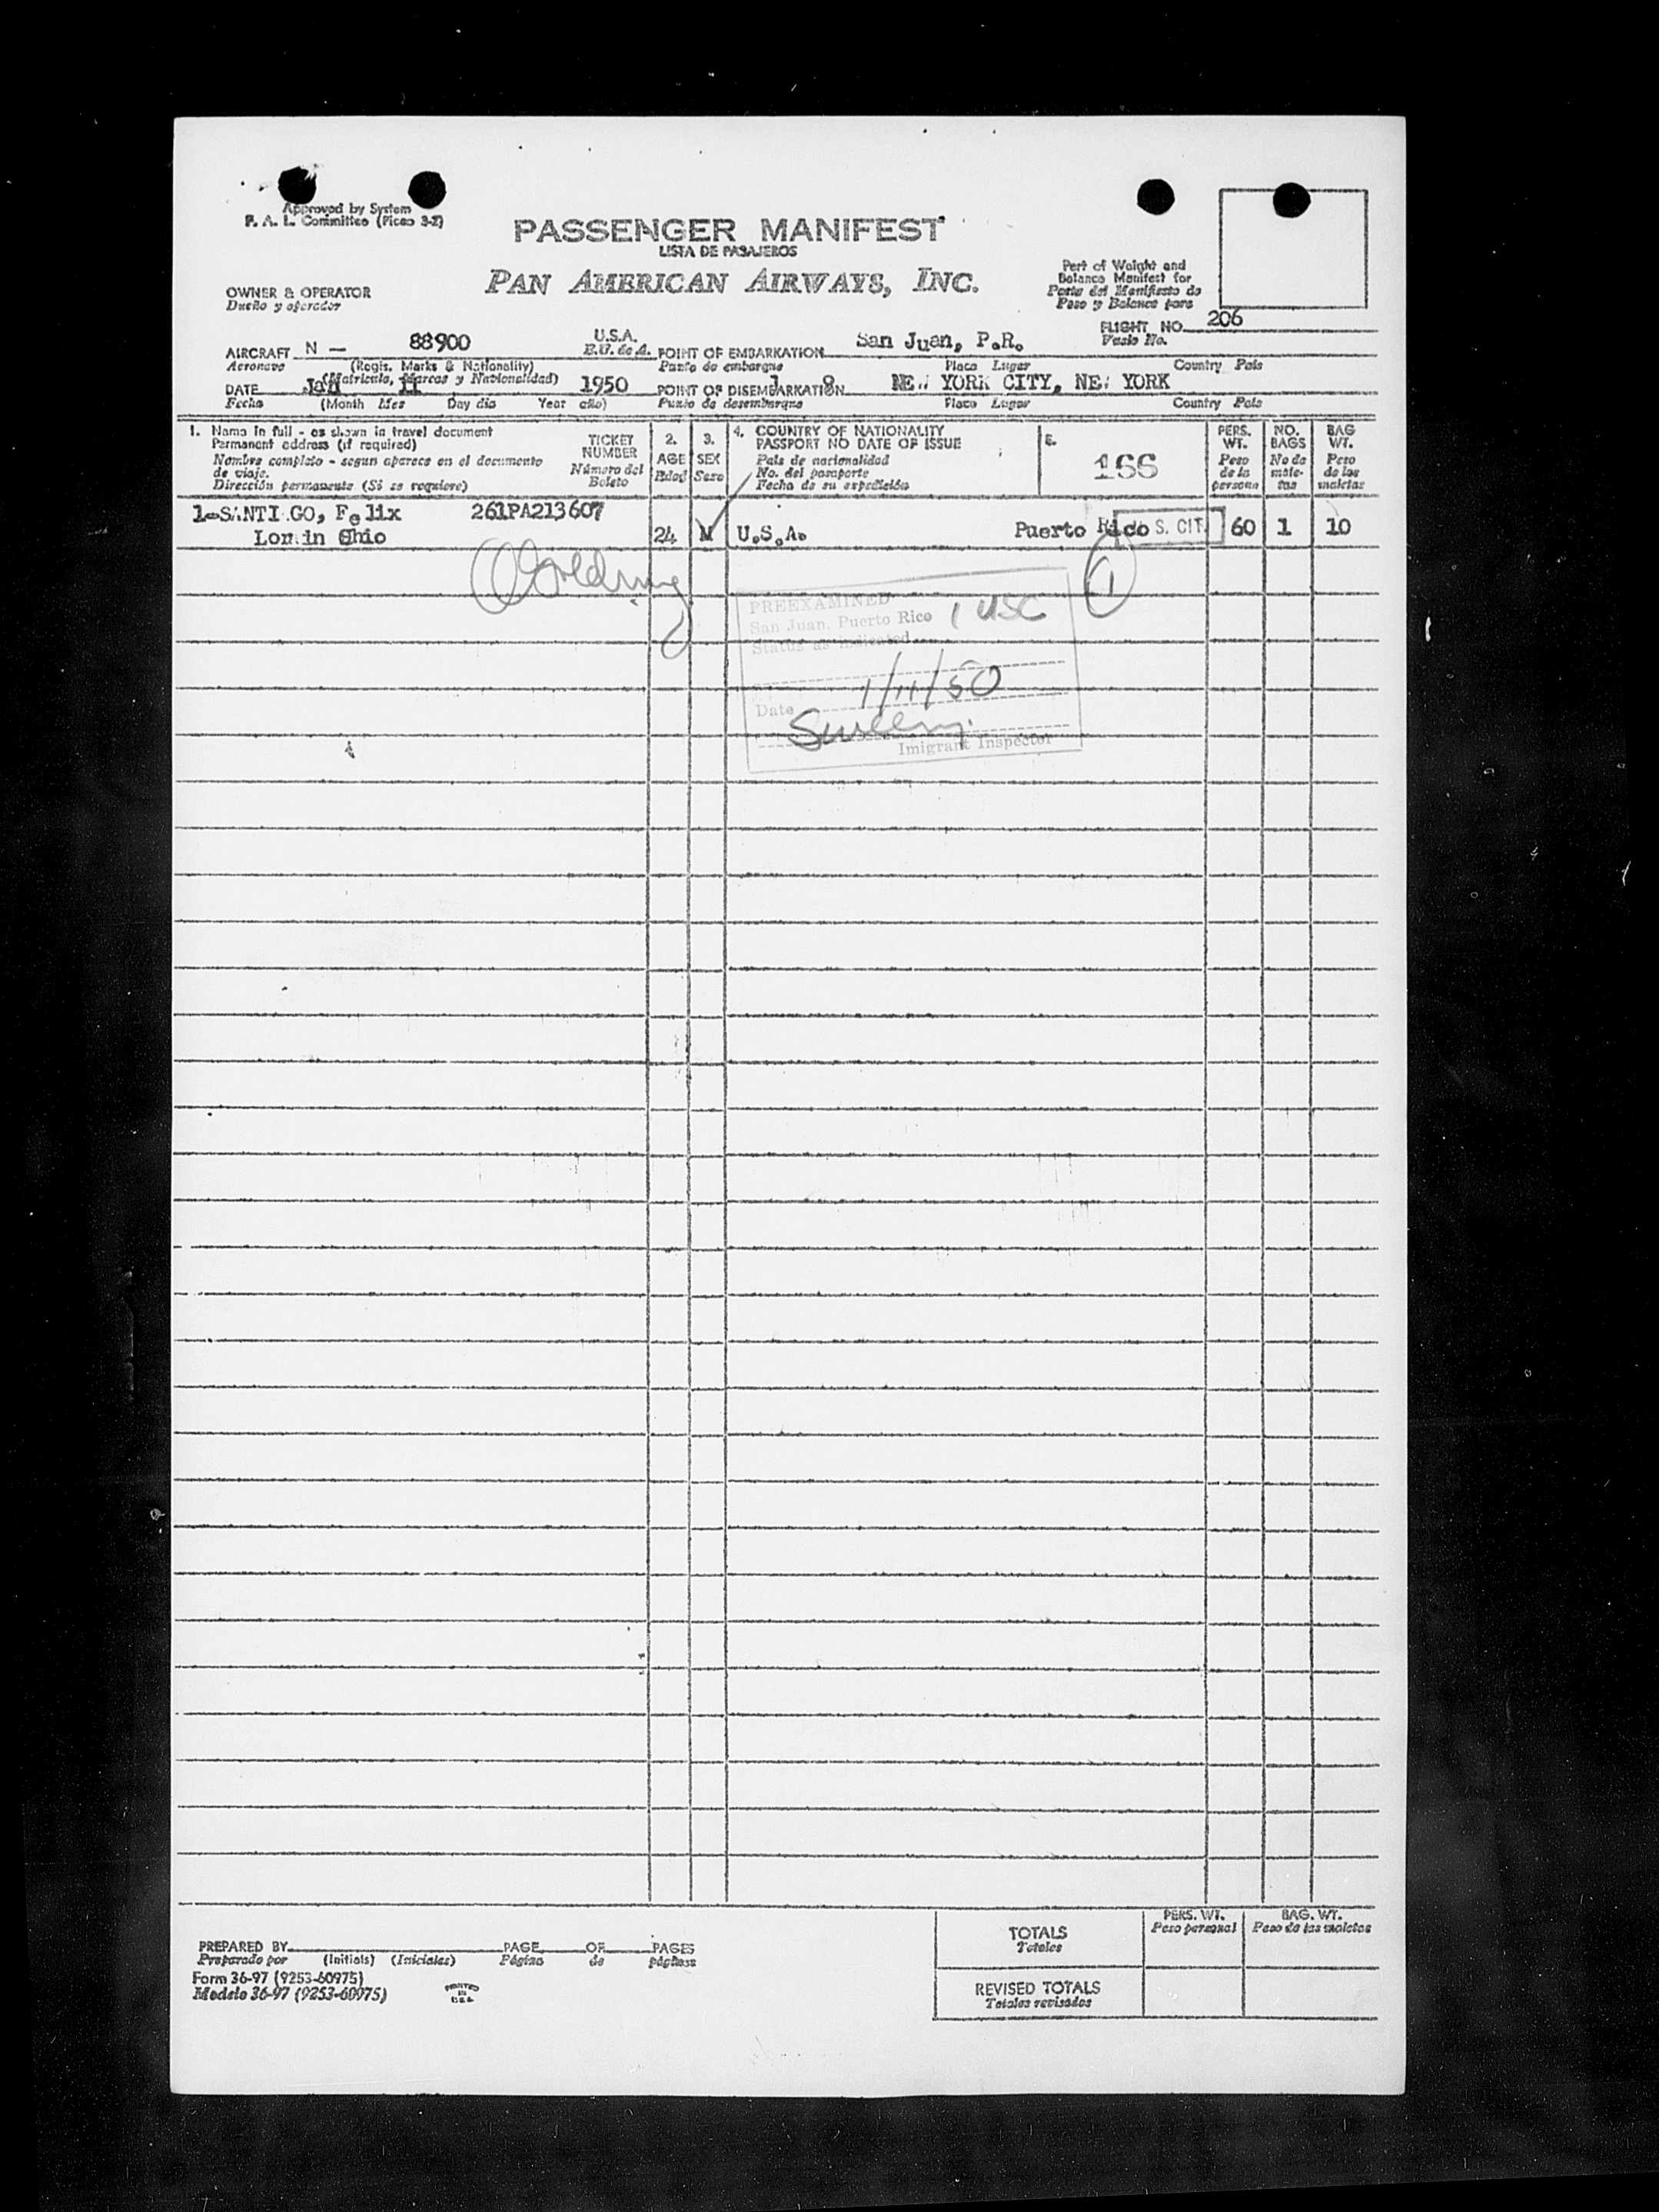 Approved by System
F. A. L. Committee (Picao 3-2)
PASSENGER MANIFEST
LISTA DE PASAJEROS
PAN AMERICAN AIRWAYS, INC.
Part of Weight and
Balance Manifest for
Parte del Manifiesto de
Peso y Balance para
OWNER & OPERATOR
Dueño y operador
FLIGHT NO. 206
Vuelo No.
AIRCRAFT N - 88900 U.S.A.
Aeronave (Regis. Marks & Nationality) E.U. de A.
(Matricula, Marcas y Nacionalidad)
POINT OF EMBARKATION San Juan, P.R.
Punto de embarque Place Lugar Country Pais
DATE Jan 11 1950
Fecha (Month Mes Day dia Year año)
POINT OF DISEMBARKATION NE. YORK CITY, NE. YORK
Punto de desembarque Place Lugar Country Pais
1. Name in full - as shown in travel document
Permanent address (if required)
Nombre completo - segun aparece en el documento
de viaje.
Dirección permanente (Si se requiere)
TICKET
NUMBER
Número del
Boleto
2.
AGE
Edad
3.
SEX
Sexo
4. COUNTRY OF NATIONALITY
PASSPORT NO DATE OF ISSUE
Pais de nacionalidad
No. del pasaporte
Fecha de su expedición
166
PERS.
WT.
Peso
de la
persona
NO.
BAGS
No de
male-
tas
BAG
WT.
Peso
de las
maletas
1-SANTI GO, Felix 261PA213607
Lor in Ohio 24 M U.S.A. Puerto Rico S. CIT. 60 1 10
1
PREEXAMINED
San Juan, Puerto Rico 1 USC
Status as indicated
Date 1/11/50
Imigrant Inspector
PREPARED BY PAGE OF PAGES
Preparado por (Initials) (Iniciales) Página de páginas
Form 36-97 (9253-60975)
Modelo 36-97 (9253-60975)
PRINTED
IN
U.S.A.
PERS. WT.
Peso personal
BAG. WT.
Peso de las maletas
TOTALS
Totales
REVISED TOTALS
Totales revisados